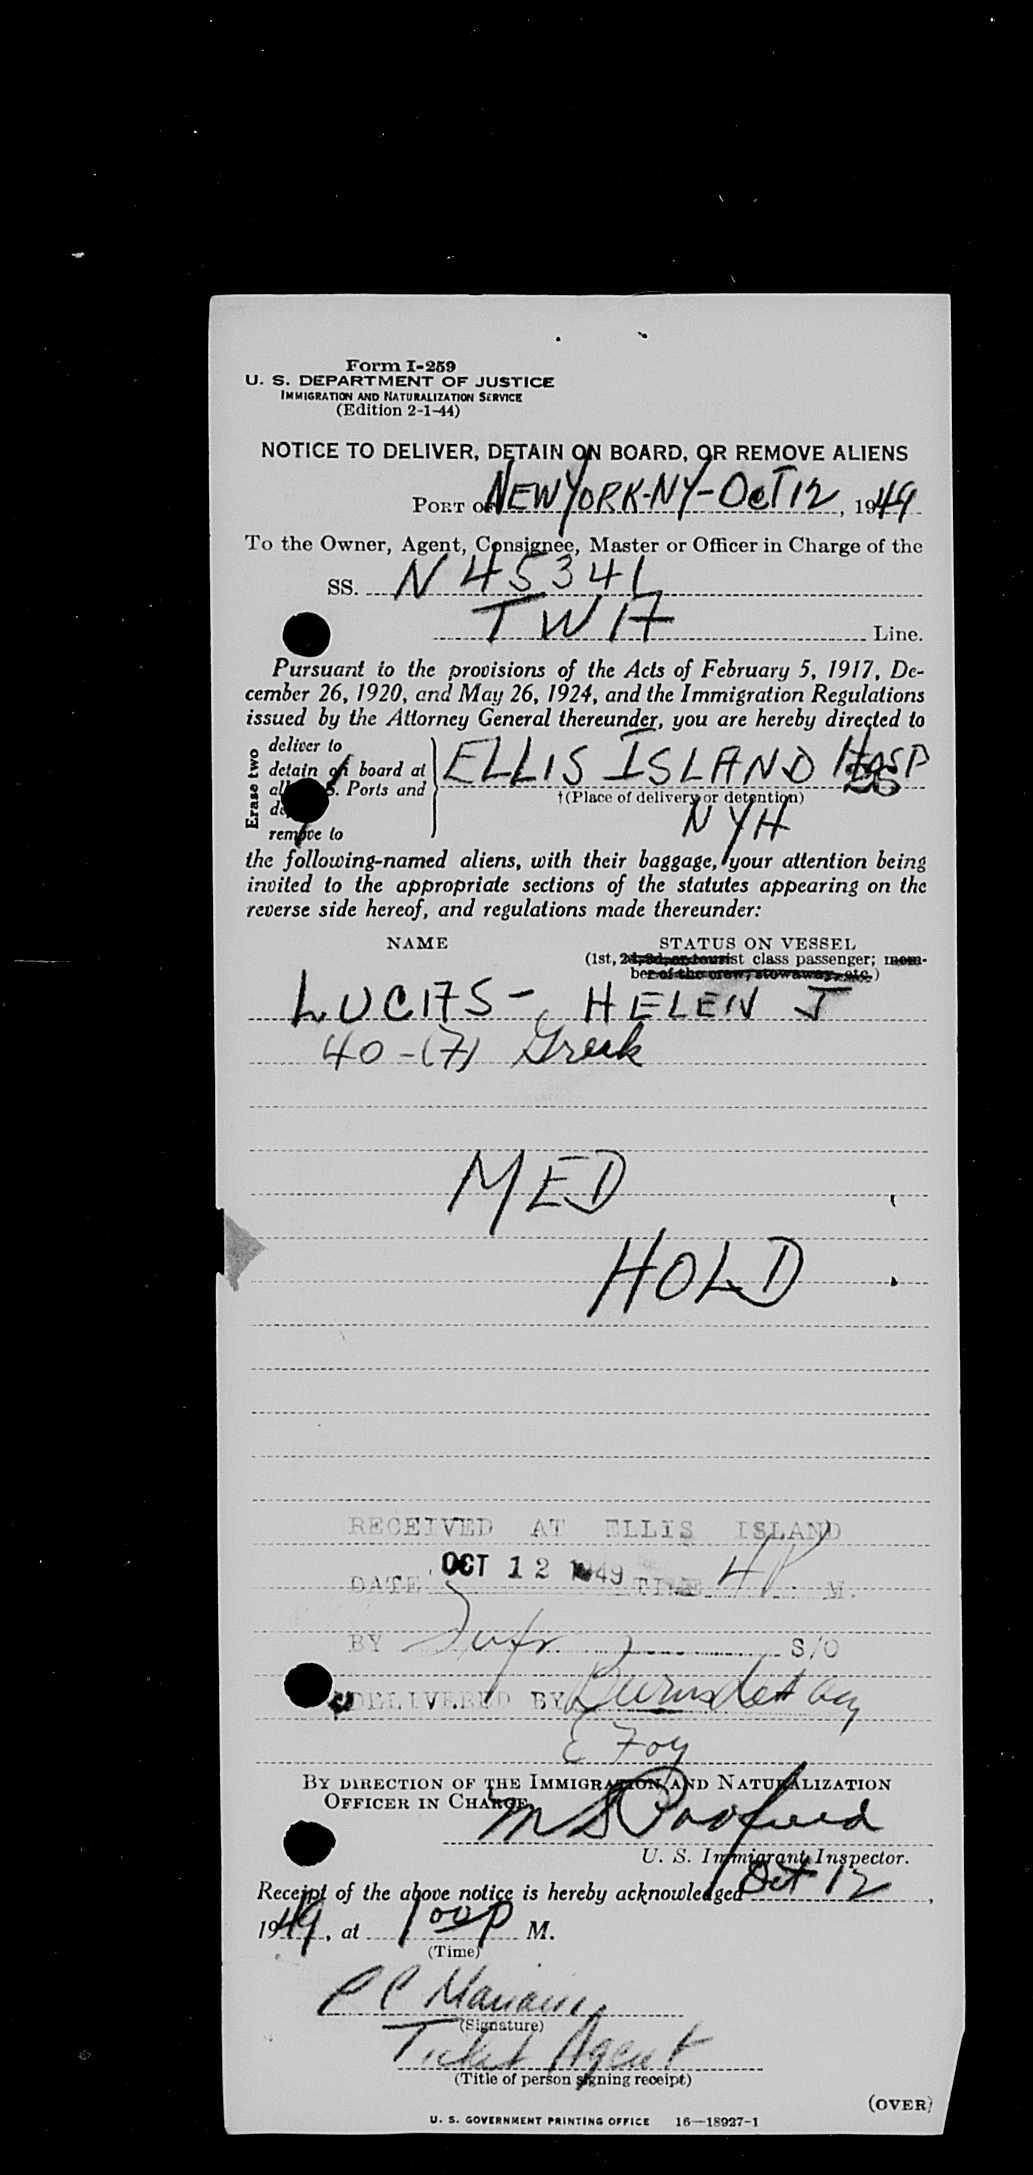 Form I-259
U. S. DEPARTMENT OF JUSTICE
IMMIGRATION AND NATURALIZATION SERVICE
(Edition 2-1-44)
NOTICE TO DELIVER, DETAIN ON BOARD, OR REMOVE ALIENS
PORT OF NEW YORK-NY-OCT 12, 1949
To the Owner, Agent, Consignee, Master or Officer in Charge of the
SS. N 45341
TWA Line.
Pursuant to the provisions of the Acts of February 5, 1917, De-
cember 26, 1920, and May 26, 1924, and the Immigration Regulations
issued by the Attorney General thereunder, you are hereby directed to
Erase two
deliver to
detain on board at
Ports and
remove to
ELLIS ISLAND HOSP
†(Place of delivery or detention)
NYH
the following-named aliens, with their baggage, your attention being
invited to the appropriate sections of the statutes appearing on the
reverse side hereof, and regulations made thereunder:
NAME STATUS ON VESSEL
(1st, 2d, 3d, or tourist class passenger; mem-
ber of the crew, stowaway, etc.)
LUCAS - HELEN J
40-(7) Greek
MED
HOLD
RECEIVED AT ELLIS ISLAND
DATE OCT 12 1949 TIME 4 P M.
BY S/O
DELIVERED BY
& Foy
BY DIRECTION OF THE IMMIGRATION AND NATURALIZATION
OFFICER IN CHARGE
U. S. Immigrant Inspector.
Receipt of the above notice is hereby acknowledged Oct 12,
1949, at 1 00 P M.
(Time)
(Signature)
Ticket Agent
(Title of person signing receipt)
(OVER)
U. S. GOVERNMENT PRINTING OFFICE 16—18927-1